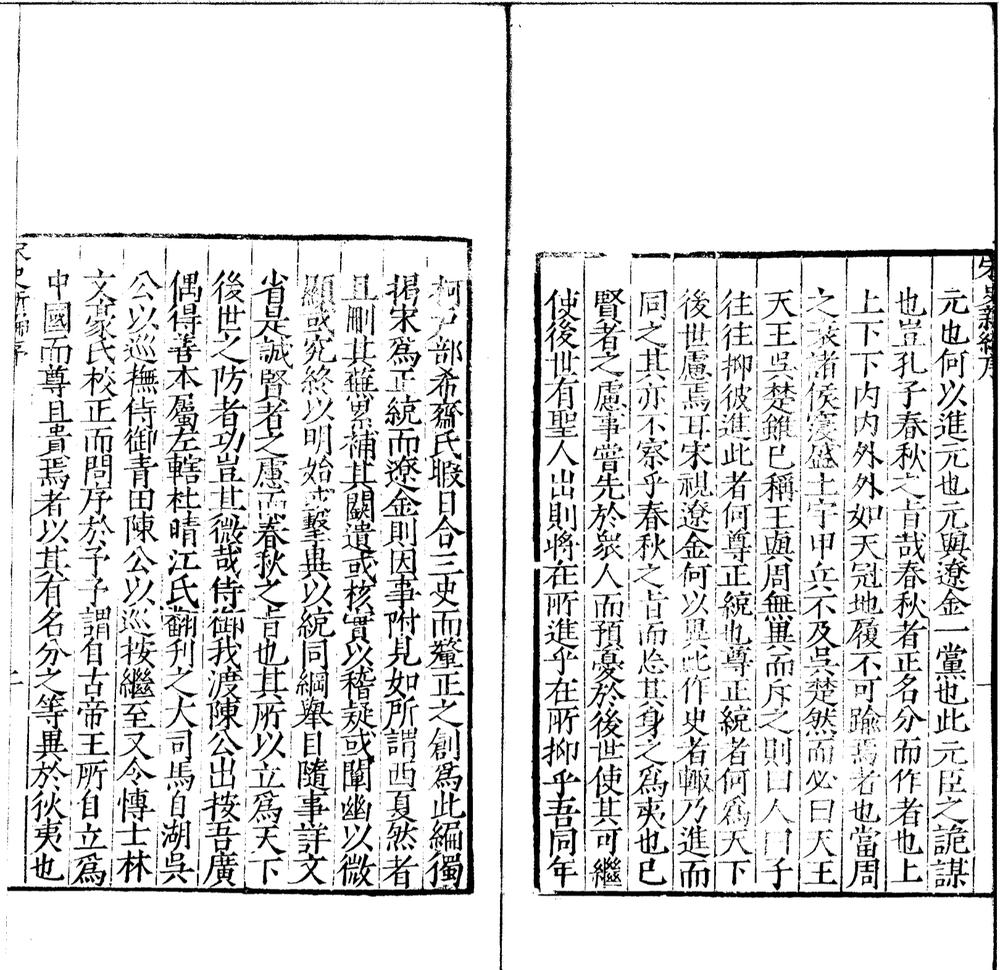 宋史新編序
元也何以進元也元與遼金一黨也此元臣之詭謀
也豈孔子春秋之旨哉春秋者正名分而作者也上
上下下內內外外如天冠地履不可踰焉者也當周
之衰諸侯寖盛土宇甲兵不及吳楚然而必曰天王
天王吳楚雖已稱王與周無異而斥之則曰人曰子
往往抑彼進此者何尊正統也尊正統者何為天下
後世慮焉耳宋視遼金何以異此作史者輙乃進而
同之其亦不察乎春秋之旨而忘其身之為夷也已
賢者之慮事嘗先於衆人而預憂於後世使其可繼
使後世有聖人出則將在所進乎在所抑乎吾同年
柯戶部希齋氏暇日合三史而釐正之創為此編獨
揭宋為正統而遼金則因事附見如所謂西夏然者
且刪其蕪累補其闕遺或核實以稽疑或闡幽以微
顯或究終以明始數擊典以統同綱舉目隨事詳文
省是誠賢者之慮而春秋之旨也其所以立為天下
後世之防者功豈其微哉侍御我渡陳公出按吾廣
偶得善本屬左轄杜晴江氏翻刊之大司馬自湖吳
公以巡撫侍御青田陳公以巡按繼至又令博士林
文豪氏校正而問序於予予謂自古帝王所自立為
中國而尊且貴焉者以其有名分之等異於狄夷也
宋史新編序
二